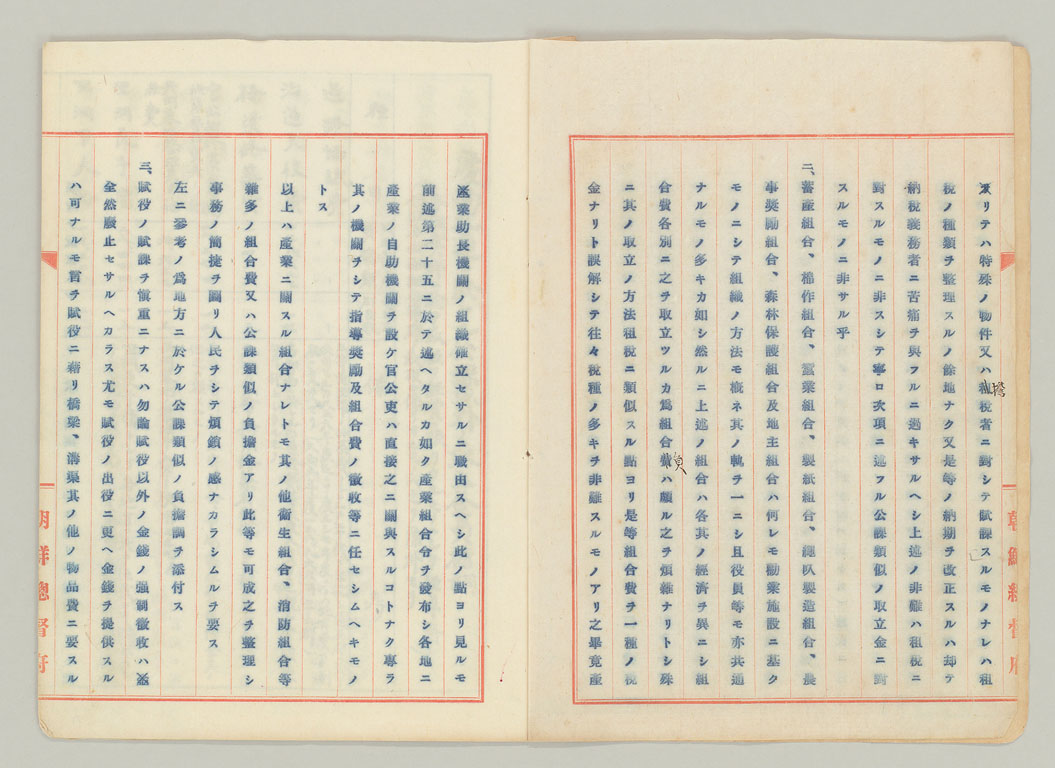 至リテハ特殊ノ物件又ハ擔税者ニ對シテ賦課スルモノナレハ租
税ノ種類ヲ整理スルノ餘地ナク又是等ノ納期ヲ改正スルハ却テ
納税義務者ニ苦痛ヲ與フルニ過キサルヘシ上述ノ非難ハ租税ニ
對スルモノニ非スシテ寧ロ次項ニ述フル公課類似ノ取立金ニ對
スルモノニ非サル乎
二、蓄産組合、棉作組合、蠶業組合、製紙組合、繩叺製造組合、農
事奬勵組合、森林保護組合及地主組合ハ何レモ勸業施設ニ基ク
モノニシテ組織ノ方法モ概ネ其ノ軌ヲ一ニシ且役員等モ亦共通
ナルモノ多キカ如シ然ルニ上述ノ組合ハ各其ノ經濟ヲ異ニシ組
合費各別ニ之ヲ取立ツルカ爲組合員ハ頗ル之ヲ煩雜ナリトシ殊
ニ其ノ取立ノ方法租税ニ類似スル點ヨリ是等組合費ヲ一種ノ税
金ナリト誤解シテ往々税種ノ多キヲ非難スルモノアリ之畢竟産
業助長機關ノ組織確立セサルニ職由スヘシ此ノ點ヨリ見ルモ
前述第二十五ニ於テ述ヘタルカ如ク産業組合令ヲ發布シ各地ニ
産業ノ自助機關ヲ設ケ官公吏ハ直接之ニ關與スルコトナク專ラ
其ノ機關ヲシテ指導奬勵及組合費ノ徴收等ニ任セシムヘキモノ
トス
以上ハ産業ニ關スル組合ナレトモ其ノ他衞生組合、消防組合等
雜多ノ組合費又ハ公課類似ノ負擔金アリ此等モ可成之ヲ整理シ
事務ノ簡捷ヲ圖リ人民ヲシテ煩鎖ノ感ナカラシムルヲ要ス
左ニ參考ノ爲地方ニ於ケル公課類似ノ負擔調ヲ添付ス
三、賦役ノ賦課ヲ愼重ニナスハ勿論賦役以外ノ金錢ノ強制徴收ハ
全然廢止セサルヘカラス尤モ賦役ノ出役ニ更ヘ金錢ヲ提供スル
ハ可ナルモ言ヲ賦役ニ藉リ橋梁、溝渠其ノ他ノ物品費ニ要スル
朝鮮總督府
朝鮮總督府